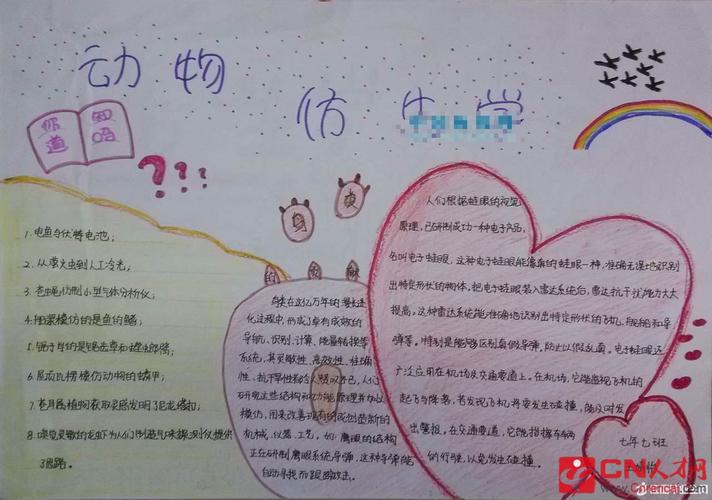 动物
仿生学
你知道吗
???
1.电鱼与伏特电池;
2.从萤火虫到人工冷光;
3.苍蝇仿制小型气体分析仪;
4.船桨模仿的是鱼的鳍;
5.锯子学的是锯齿草和螳螂臂;
6.屋顶瓦楞模仿动物的鳞甲;
7.苍耳属植物获取灵感发明了尼龙搭扣;
8.嗅觉灵敏的龙虾为人们制造气味探测仪提供
了思路。
的贡献
身体在这亿万年的漫长进
化过程中,形成了卓有成效的
导航、识别、计算、能量转换等
系统,其灵敏性、高效性、准确
性、抗干扰性都令人惊叹不已,人们
研究这些结构和功能原理并加以
模仿,用来改善现有的或创造新的
机械、仪器、工艺,如:鹰眼的结构
正在研制鹰眼系统导弹,这种导弹能
自动寻找而跟踪攻击。
人们根据蛙眼的视觉
原理,已研制成功一种电子产品,
名叫电子蛙眼,这种电子蛙眼能像真的蛙眼一样,准确无误地识别
出特定形状的物体。把电子蛙眼装入雷达系统后,雷达抗干扰能力大大
提高。这种雷达系统能准确地识别出特定形状的飞机、舰船和导
弹等。特别是能够区别真假导弹,防止以假乱真。电子蛙眼还
广泛应用在机场及交通要道上。在机场,它能监视飞机的
起飞与降落,若发现飞机将要发生碰撞,能及时发
出警报。在交通要道,它能指挥车辆
的行驶,以免发生碰撞。
七年七班
CN人才网
cnrencai.com